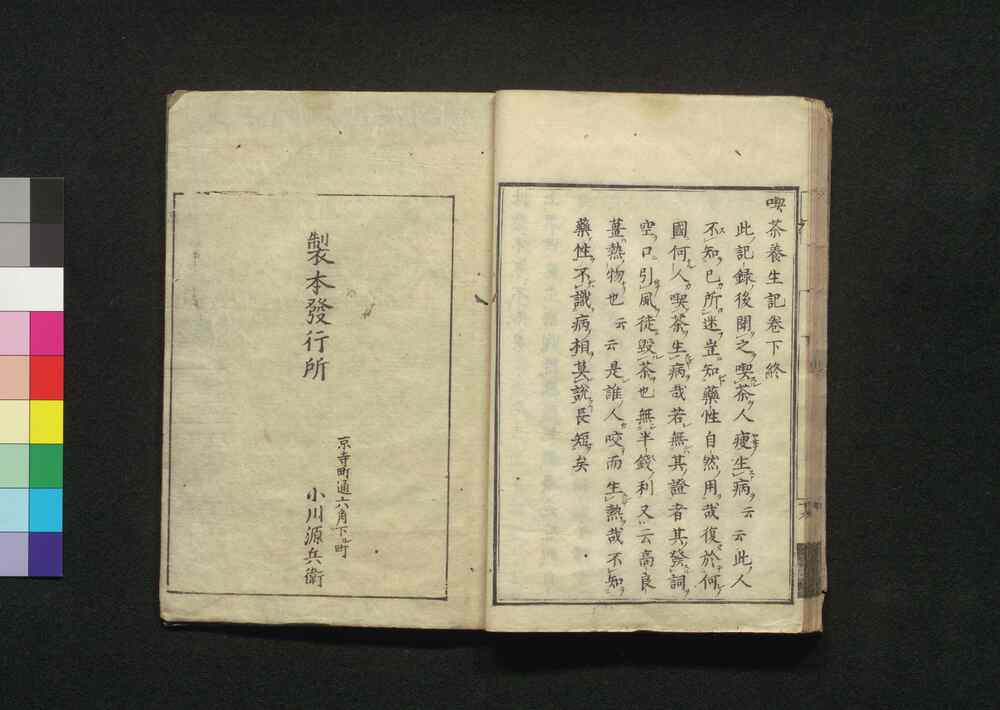 喫茶養生記卷下終
此記録後聞之喫茶人瘦生病云云此人
不知已所迷豈知藥性自然用哉復於何
國何人喫茶生病哉若無其證者其發詞
空口引風徒毀茶也無半錢利又云高良
薑熱物也云云是誰人咬而生熱哉不知
藥性不識病相莫說長短矣
製本發行所
京寺町通六角下ル町
小川源兵衛